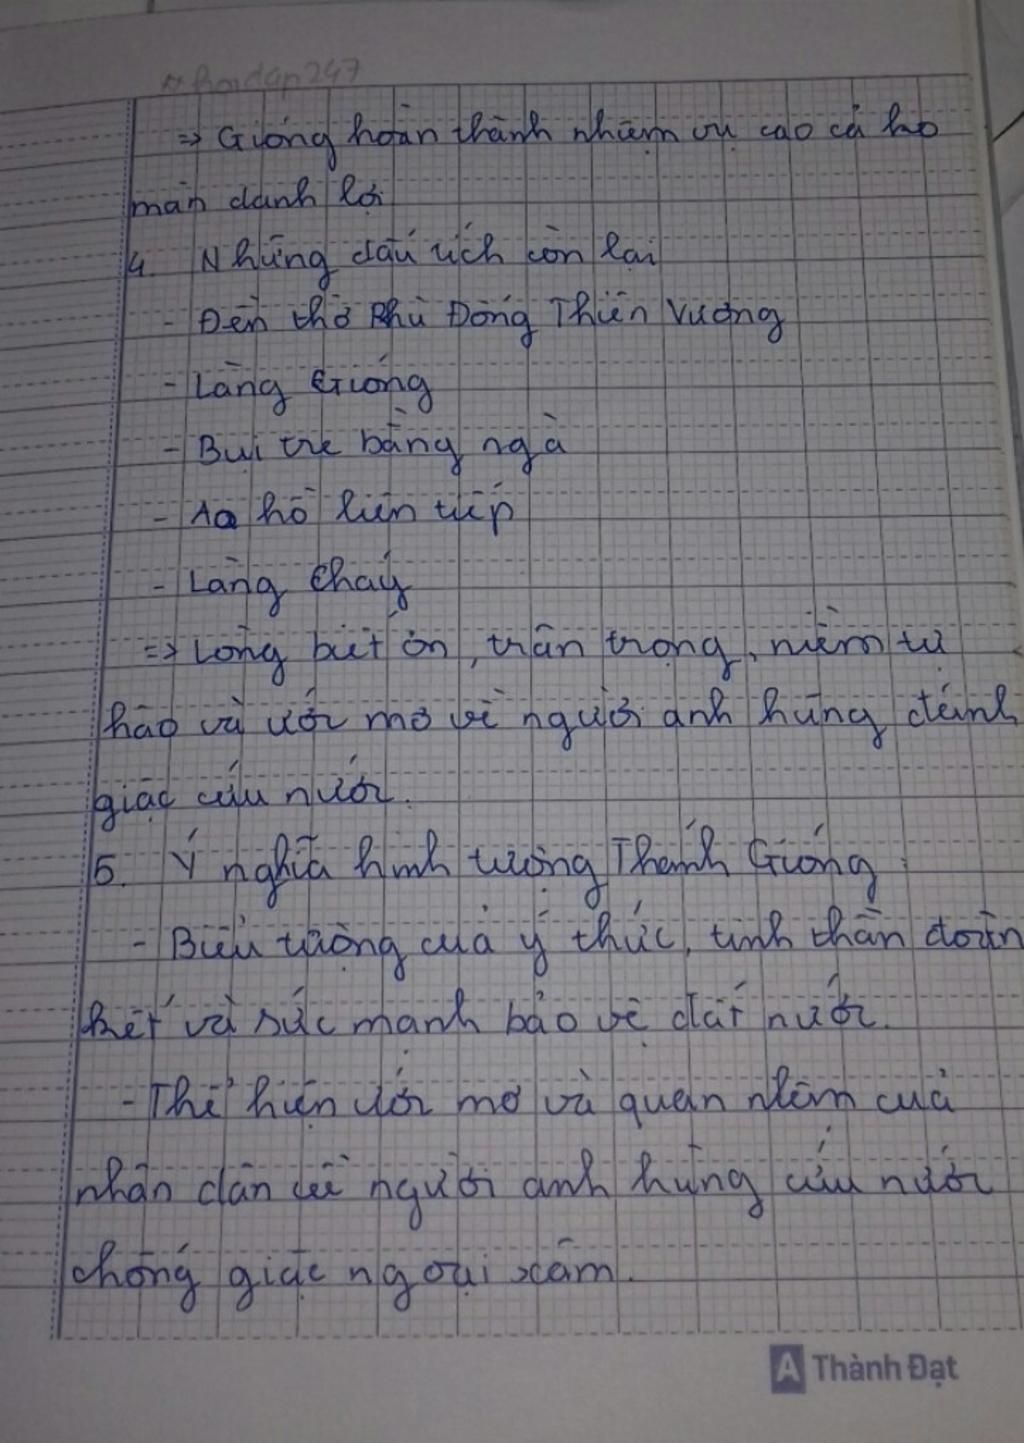 # hoidap247
=> Gióng hoàn thành nhiệm vụ cao cả ko
màn danh lợi
4. Những dấu tích còn lại
- Đền thờ Phù Đổng Thiên Vương
- Làng Gióng
- Bụi tre bằng ngà
- Ao hồ liên tiếp
- Làng cháy
=> Lòng biết ơn, trân trọng, niềm tự
hào và ước mơ về người anh hùng đánh
giặc cứu nước.
5. Ý nghĩa hình tượng Thánh Gióng
- Biểu tượng của ý thức, tinh thần đoàn
kết và sức mạnh bảo vệ đất nước.
- Thể hiện ước mơ và quan niệm của
nhân dân về người anh hùng cứu nước
chống giặc ngoại xâm.
A Thành Đạt